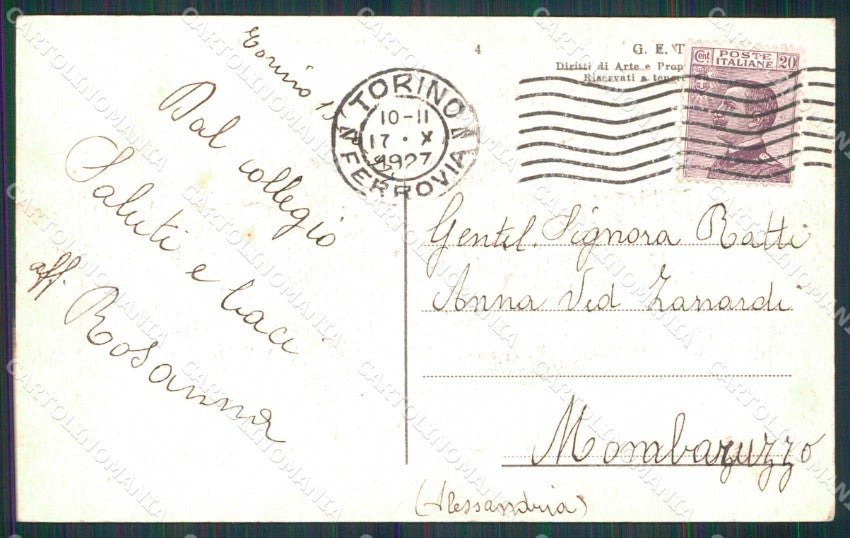 4
G. E. T
Diritti di Arte e Prop
Riservati a tenor
POSTE
ITALIANE
Cent 20
TORINO
10-11
17 · X
1927
FERROVIA
Torino 15
Dal collegio
Saluti e baci
aff. Rosanna
Gentil. Signora Ratti
Anna Ved Zanardi
Mombaruzzo
(Alessandria)
CARTOLINOMANIA